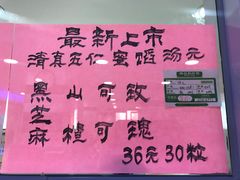 最新上市
清真五仁蜜馅汤元
黑 山 可 玫
芝
麻 楂 可 瑰
36元30粒